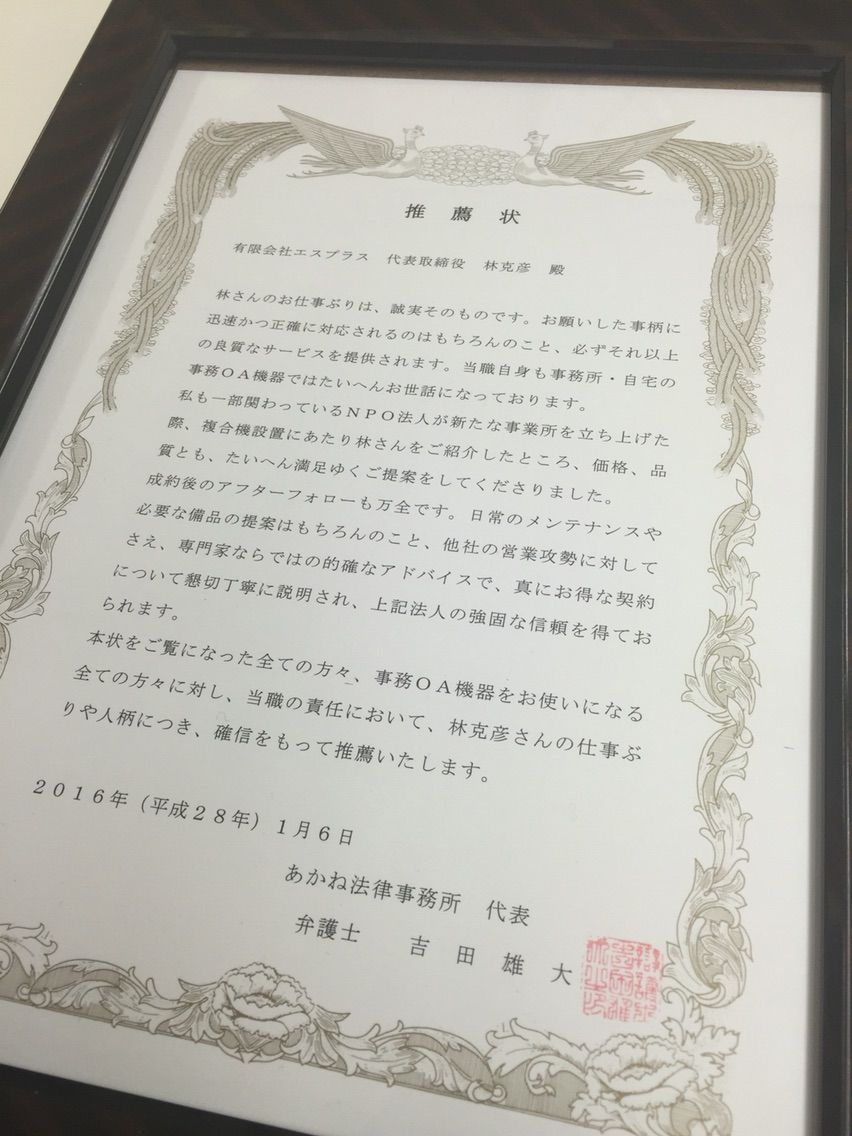 推薦状
有限会社エスプラス 代表取締役 林克彦 殿
林さんのお仕事ぶりは、誠実そのものです。お願いした事柄に
迅速かつ正確に対応されるのはもちろんのこと、必ずそれ以上
の良質なサービスを提供されます。当職自身も事務所・自宅の
事務OA機器ではたいへんお世話になっております。
私も一部関わっているNPO法人が新たな事業所を立ち上げた
際、複合機設置にあたり林さんをご紹介したところ、価格、品
質とも、たいへん満足ゆくご提案をしてくださりました。
成約後のアフターフォローも万全です。日常のメンテナンスや
必要な備品の提案はもちろんのこと、他社の営業攻勢に対して
さえ、専門家ならではの的確なアドバイスで、真にお得な契約
について懇切丁寧に説明され、上記法人の強固な信頼を得てお
られます。
本状をご覧になった全ての方々、事務OA機器をお使いになる
全ての方々に対し、当職の責任において、林克彦さんの仕事ぶ
りや人柄につき、確信をもって推薦いたします。
2016年(平成28年)1月6日
あかね法律事務所 代表
弁護士 吉田雄大